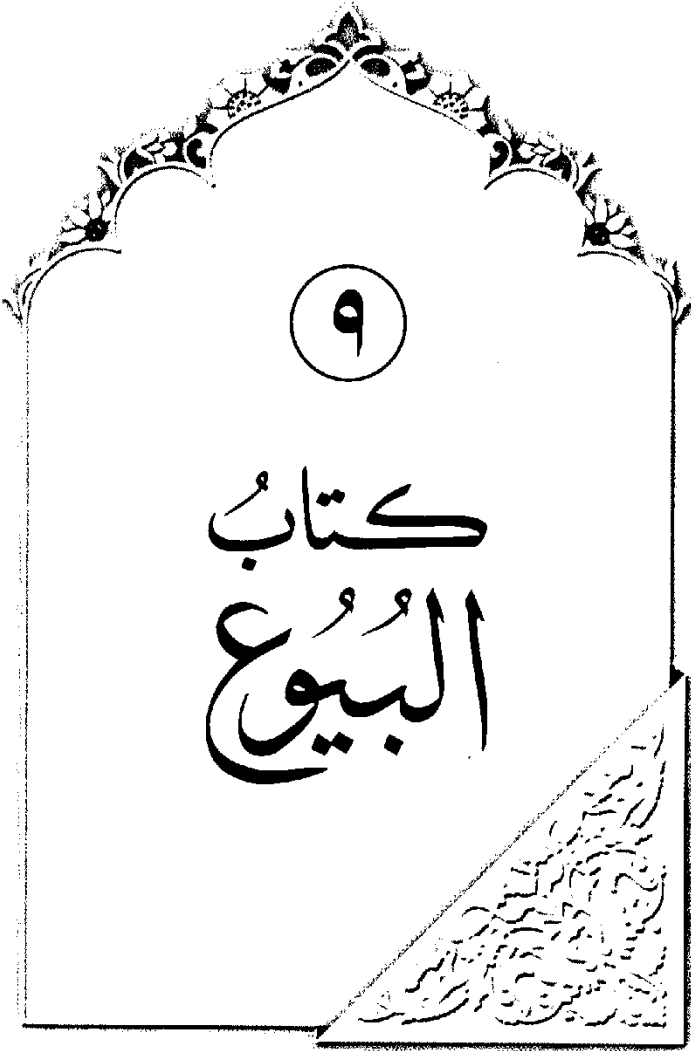 ٩
كتابُ
البُيُوع